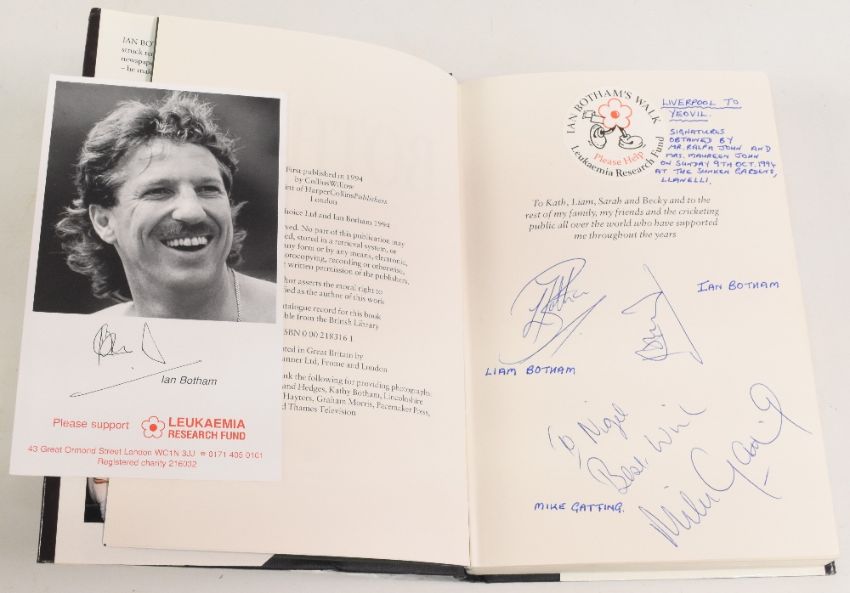 IAN BOT
struck
newspape
– he mak
Ian Botham
Please support LEUKAEMIA
RESEARCH FUND
43 Great Ormond Street London WC1N 3JJ ☎ 0171 405 0101
Registered charity 216032
First published in 1994
by CollinsWillow
of HarperCollinsPublishers
London
hoice Ltd and Ian Botham 1994
ved. No part of this publication may
ed, stored in a retrieval system, or
any form or by any means, electronic,
otocopying, recording or otherwise,
written permission of the publishers.
ham asserts the moral right to
ified as the author of this work
talogue record for this book
ble from the British Library
SBN 0 00 218316 1
ted in Great Britain by
anner Ltd, Frome and London
nk the following for providing photographs:
and Hedges, Kathy Botham, Lincolnshire
Hayters, Graham Morris, Pacemaker Press,
nd Thames Television
IAN BOTHAM'S WALK
Please Help
Leukaemia Research Fund
LIVERPOOL TO
YEOVIL.
SIGNATURES
OBTAINED BY
MR. RALPH JOHN AND
MRS. MAUREEN JOHN
ON SUNDAY 9TH OCT. 1994
AT THE SUNKEN GARDENS,
LLANELLI.
To Kath, Liam, Sarah and Becky and to the
rest of my family, my friends and the cricketing
public all over the world who have supported
me throughout the years
IAN BOTHAM
LIAM BOTHAM
To Nigel
Best Wishes
Mike Gatting
MIKE GATTING.